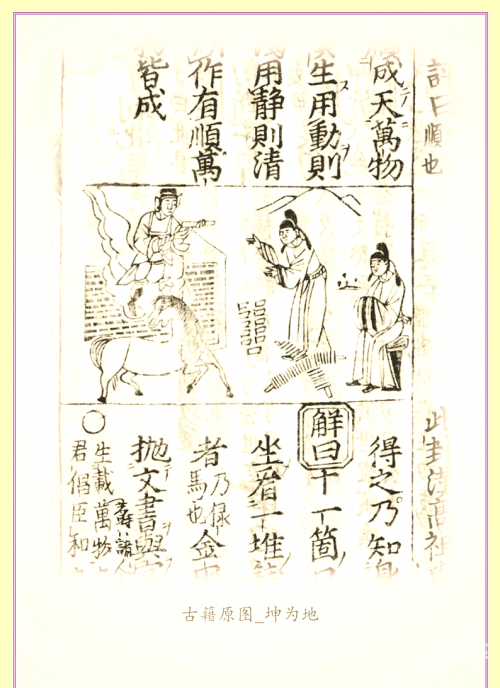 順也
成天萬物
生用動則
用静則清
作有順萬
皆成
此卦漢高祖
得之乃知
解曰
坐看一堆
者乃禄馬也金
抛文書與
生載萬物
君倡臣和
古籍原图_坤为地